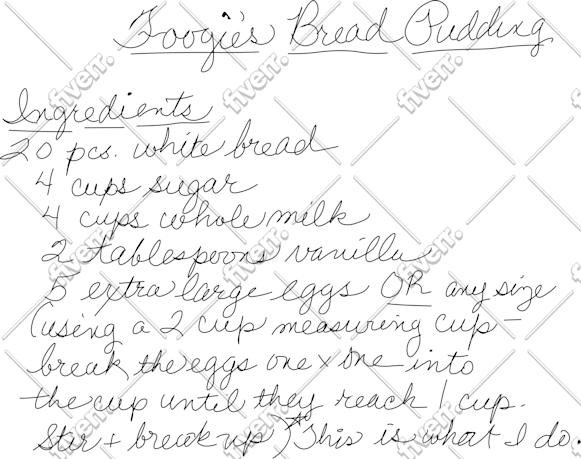 Foogie's Bread Pudding
Ingredients
20 pcs. white bread
4 cups sugar
4 cups whole milk
2 tablespoons vanilla
5 extra large eggs OR any size
(using a 2 cup measuring cup –
break the eggs one x one into
the cup until they reach 1 cup.
Stir + break up) *This is what I do.
fiverr.